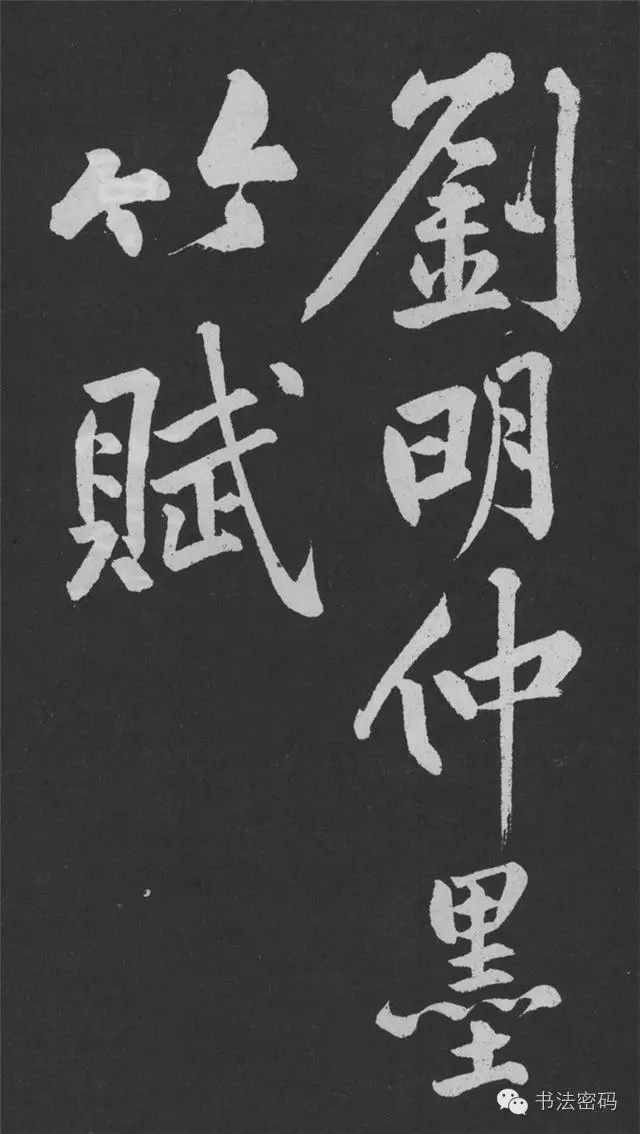 劉明仲墨
竹賦
书法密码